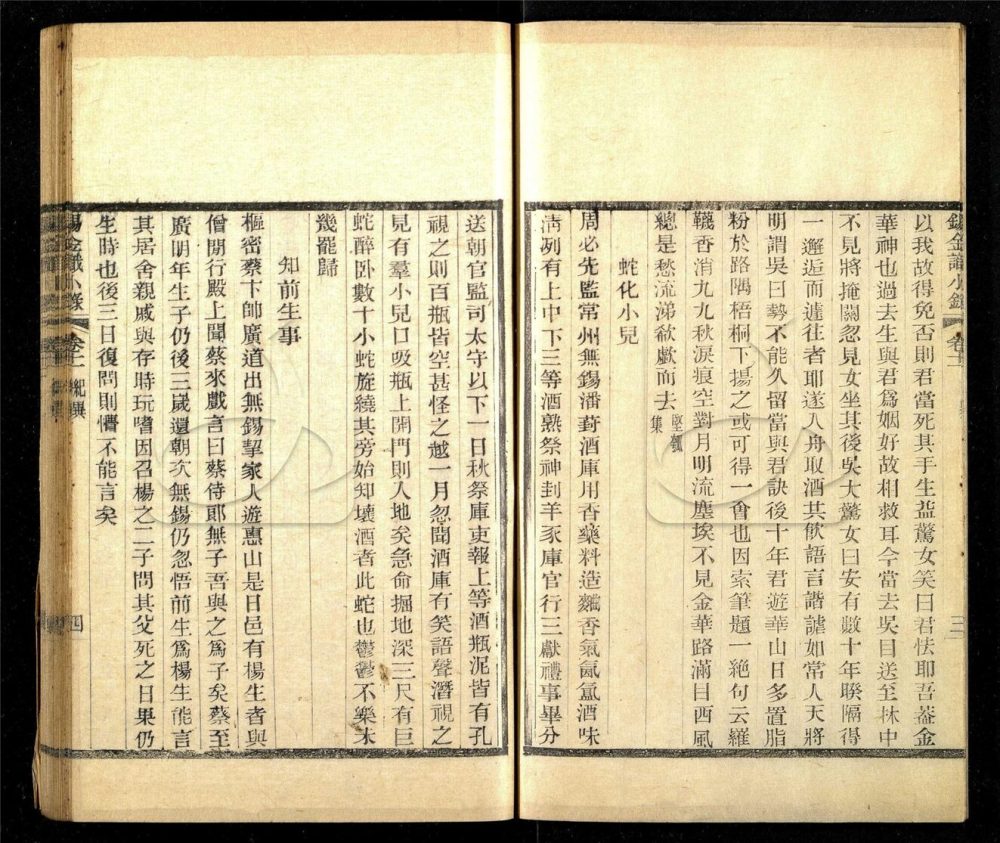 錫金識小錄 卷十一 三
以我故得免否則君當死其手生益驚女笑曰君怯耶吾葢金
華神也過去生與君爲姻好故相救耳今當去吳目送至林中
不見將掩關忽見女坐其後吳大驚女曰安有數十年睽隔得
一邂逅而遽往者耶遂入舟取酒共飮語言諧謔如常人天將
明謂吳曰勢不能久留當與君訣後十年君遊華山日多置脂
粉於路隅梧桐下揚之或可得一會也因索筆題一絶句云羅
韈香消九九秋淚痕空對月明流塵埃不見金華路滿目西風
總是愁流涕欷歔而去堅瓠集
蛇化小兒
周必先監常州無錫潘葑酒庫用香藥料造麯香氣氤氳酒味
淸冽有上中下三等酒熟祭神封羊豕庫官行三獻禮事畢分
送朝官監司太守以下一日秋祭庫吏報上等酒瓶泥皆有孔
視之則百瓶皆空甚怪之越一月忽聞酒庫有笑語聲潛視之
見有羣小兒口吸瓶上開門則入地矣急命掘地深三尺有巨
蛇醉卧數十小蛇旋繞其旁始知壊酒者此蛇也鬱鬱不樂未
幾罷歸
知前生事
樞密蔡卞帥廣道出無錫挈家人遊惠山是日邑有楊生者與
僧閒行殿上聞蔡來戲言曰蔡侍郞無子吾與之爲子矣蔡至
廣明年生子仍後三歲還朝次無錫仍忽悟前生爲楊生能言
其居舍親戚與存時玩嗜因召楊之二子問其父死之日果仍
生時也後三日復問則懵不能言矣
錫金識小錄 卷十一 紀異 四